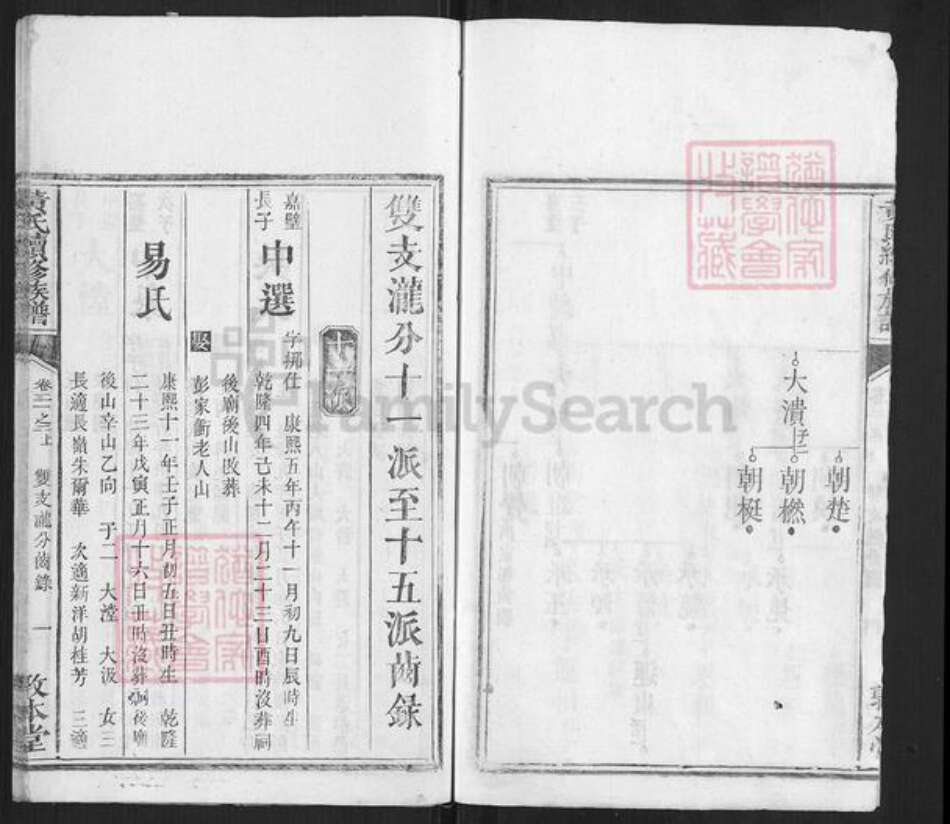 大潰
子三
朝楚
朝橪
朝梃
雙支瀧分十一派至十五派齒錄
十一派
嘉璧
長子
中選
字挪仕 康熙五年丙午十一月初九日辰時生
乾隆四年己未十二月二十三日酉時沒葬祠
後廟後山改葬
彭家衝老人山
娶
易氏
康熙十一年壬子正月初五日丑時生 乾隆
二十三年戊寅正月十六日丑時沒葬祠後廟
後山辛山乙向 子二 大瀅 大汲 女三
長適長嶺朱爾華 次適新洋胡桂芳 三適
黃氏續修族譜
卷三之上 雙支瀧分齒錄 一
敦本堂
FamilySearch